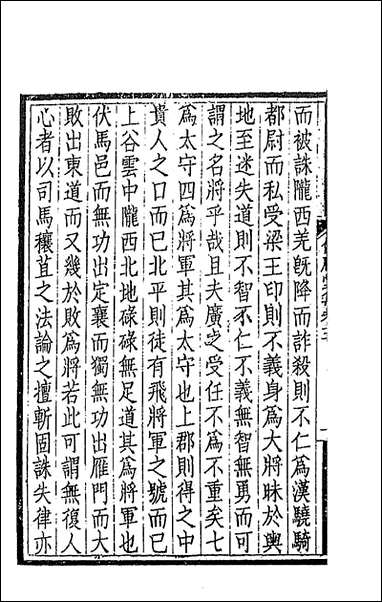 而被誅隴西羌旣降而詐殺則不仁爲漢驍騎
都尉而私受梁王印則不義身爲大將昧於輿
地至迷失道則不智不仁不義無智無勇而可
謂之名將乎哉且夫廣之受任不爲不重矣七
爲太守四爲將軍其爲太守也上郡則得之中
貴人之口而已北平則徒有飛將軍之號而已
上谷雲中隴西北地碌碌無足道其爲將軍也
伏馬邑而無功出定襄而獨無功出雁門而大
敗出東道而又幾於敗爲將若此可謂無復人
心者以司馬穰苴之法論之擅斬固誅失律亦